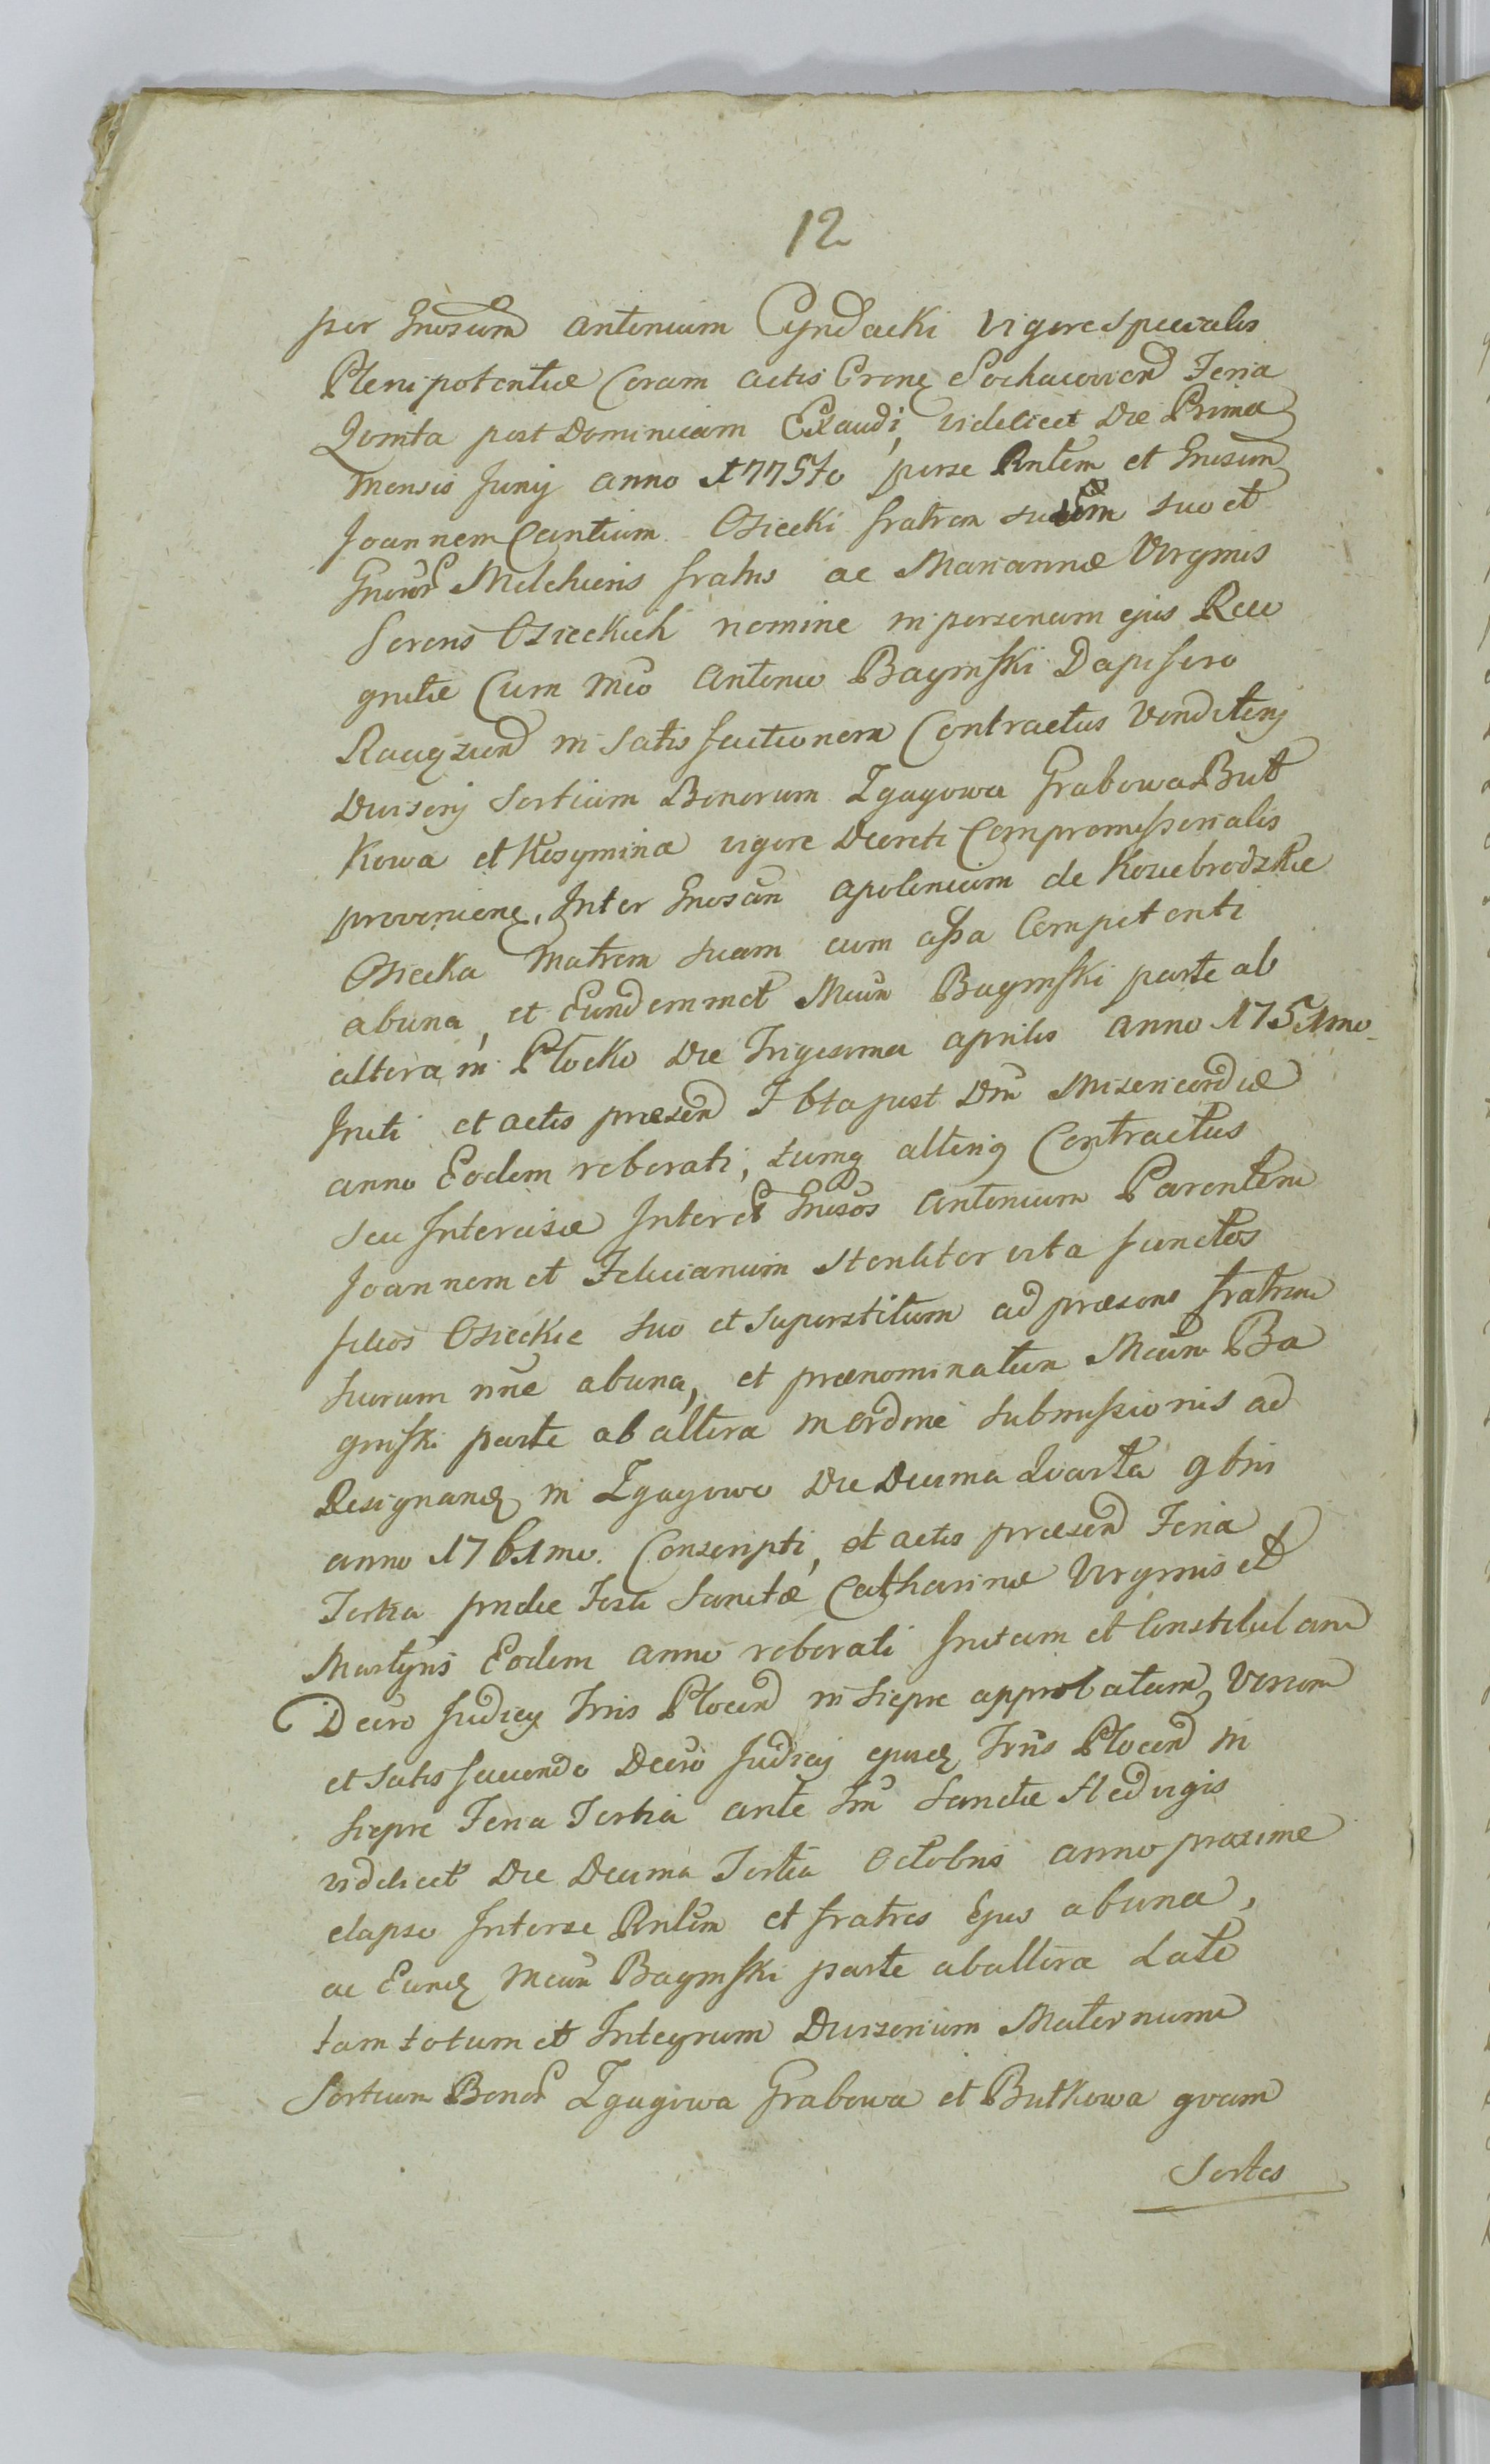 12
per Gnosum Antonium Cyndacki vigore specialis
Plenipotentiæ Coram actis Crens Sochacovien Feria
Qvinta post Dominicam Exaudi, videlicet Die Prima
Mensis Junij anno 1775to per se Rntem et Gnosum
Joannem Cantium Osiecki fratrem suum suo et
Gnosor Melchioris fratris ac Mariannæ Virginis
Sororis Osieckich nomine in personam ejus Reco
gnitæ Cum Mco Antonio Baginski Dapifero
Raciązien in satisfactionem Contractus Venditorij
Divisorij Sortium Bonorum Zgagowa Grabowa But
kowa et Kesymina vigore Decreti Compromissorialis
provenien, Inter Gnosam Apoloniam de Koziebrodzkie
Osiecka Matrem suam cum assa Competenti
ab una, et Eundemmet Mcum Baginski parte ab
altera in Plocko Die Trigesima Aprilis Anno 1751mo
Initi et actis præsen Fbta post Dm Misericordiæ
anno Eodem roborati, tumq alterig Contractus
seu Intercisæ Inter et Gnosos Antonium Parentem
Joannem et Felicianum Steriliter vita functos
filios Osieckie suo et superstitum ad præsens fratrum
suorum nne ab una, et prænominatum Mcum Ba
ginski parte ab altera in ordine submissionis ad
Resignand in Zgagowo Die Decima Quarta 9bris
anno 1761mo. Conscripti, et actis præsen Feria
Tertia pridie Festi Sanctæ Catharinæ Virginis et
Martyris Eodem anno roborati Initam et Constitutam
Decro Judicij Trris Plocen in Siepre approbatam Verum
et satisfaciendo Decro Judicij ejusd Trris Plocen in
Siepre Feria Tertia ante Fm Sanctæ Hedvigis
videlicet Die Decima Tertia Octobris anno proxime
elapso Inter se Rntem et fratres Ejus ab una,
ac Eund Mcum Baginski parte ab altera Lato
tam totum et Integrum Divisorium Maternum
Sortium Bonor Zgagowa Grabowa et Butkowa qvam
Sortes